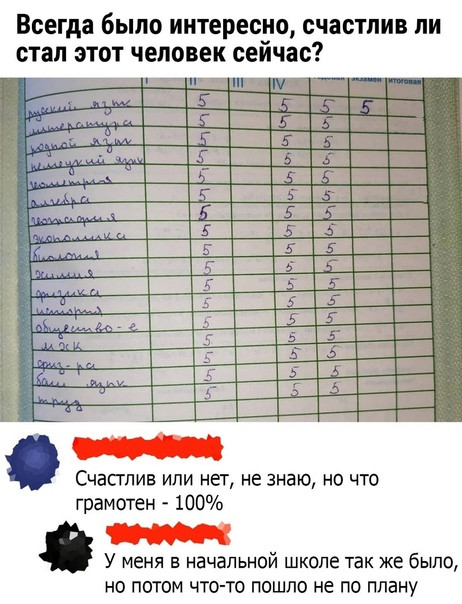 Всегда было интересно, счастлив ли
стал этот человек сейчас?
I II III IV экзамен итоговая
русский язык 5 5 5 5
литература 5 5 5
родной язык 5 5 5
немецкий язык 5 5 5
геометрия 5 5 5
алгебра 5 5 5
география 5 5 5
экономика 5 5 5
биология 5 5 5
химия 5 5 5
физика 5 5 5
история 5 5 5
общество-е 5 5 5
МХК 5 5 5
физ-ра 5 5 5
баш язык 5 5 5
труд 5 5 5
Счастлив или нет, не знаю, но что
грамотен - 100%
У меня в начальной школе так же было,
но потом что-то пошло не по плану